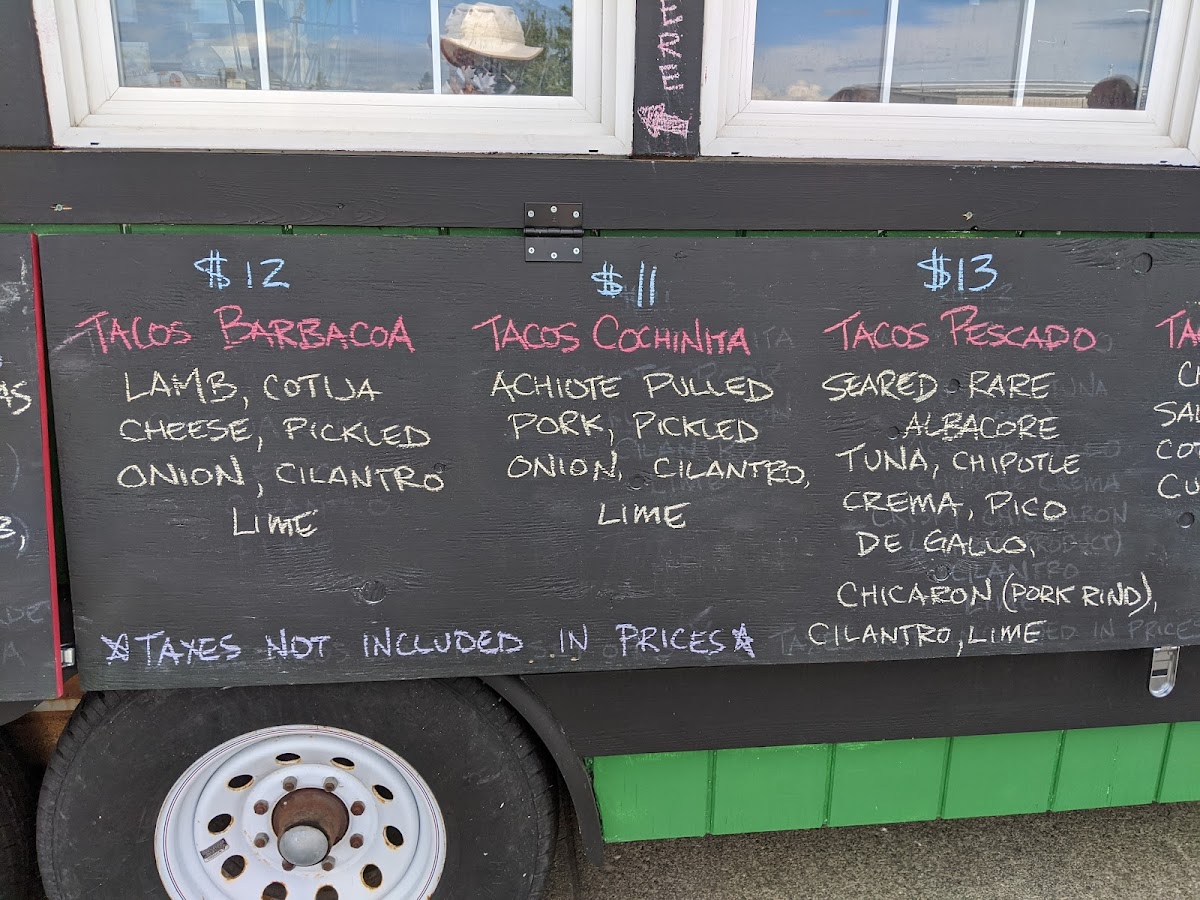 $12
TACOS BARBACOA
LAMB, COTIJA
CHEESE, PICKLED
ONION, CILANTRO
LIME
$11
TACOS COCHINITA
ACHIOTE PULLED
PORK, PICKLED
ONION, CILANTRO,
LIME
$13
TACOS PESCADO
SEARED RARE
ALBACORE
TUNA, CHIPOTLE
CREMA, PICO
DE GALLO,
CHICARON (PORK RIND),
CILANTRO, LIME
TAXES NOT INCLUDED IN PRICES